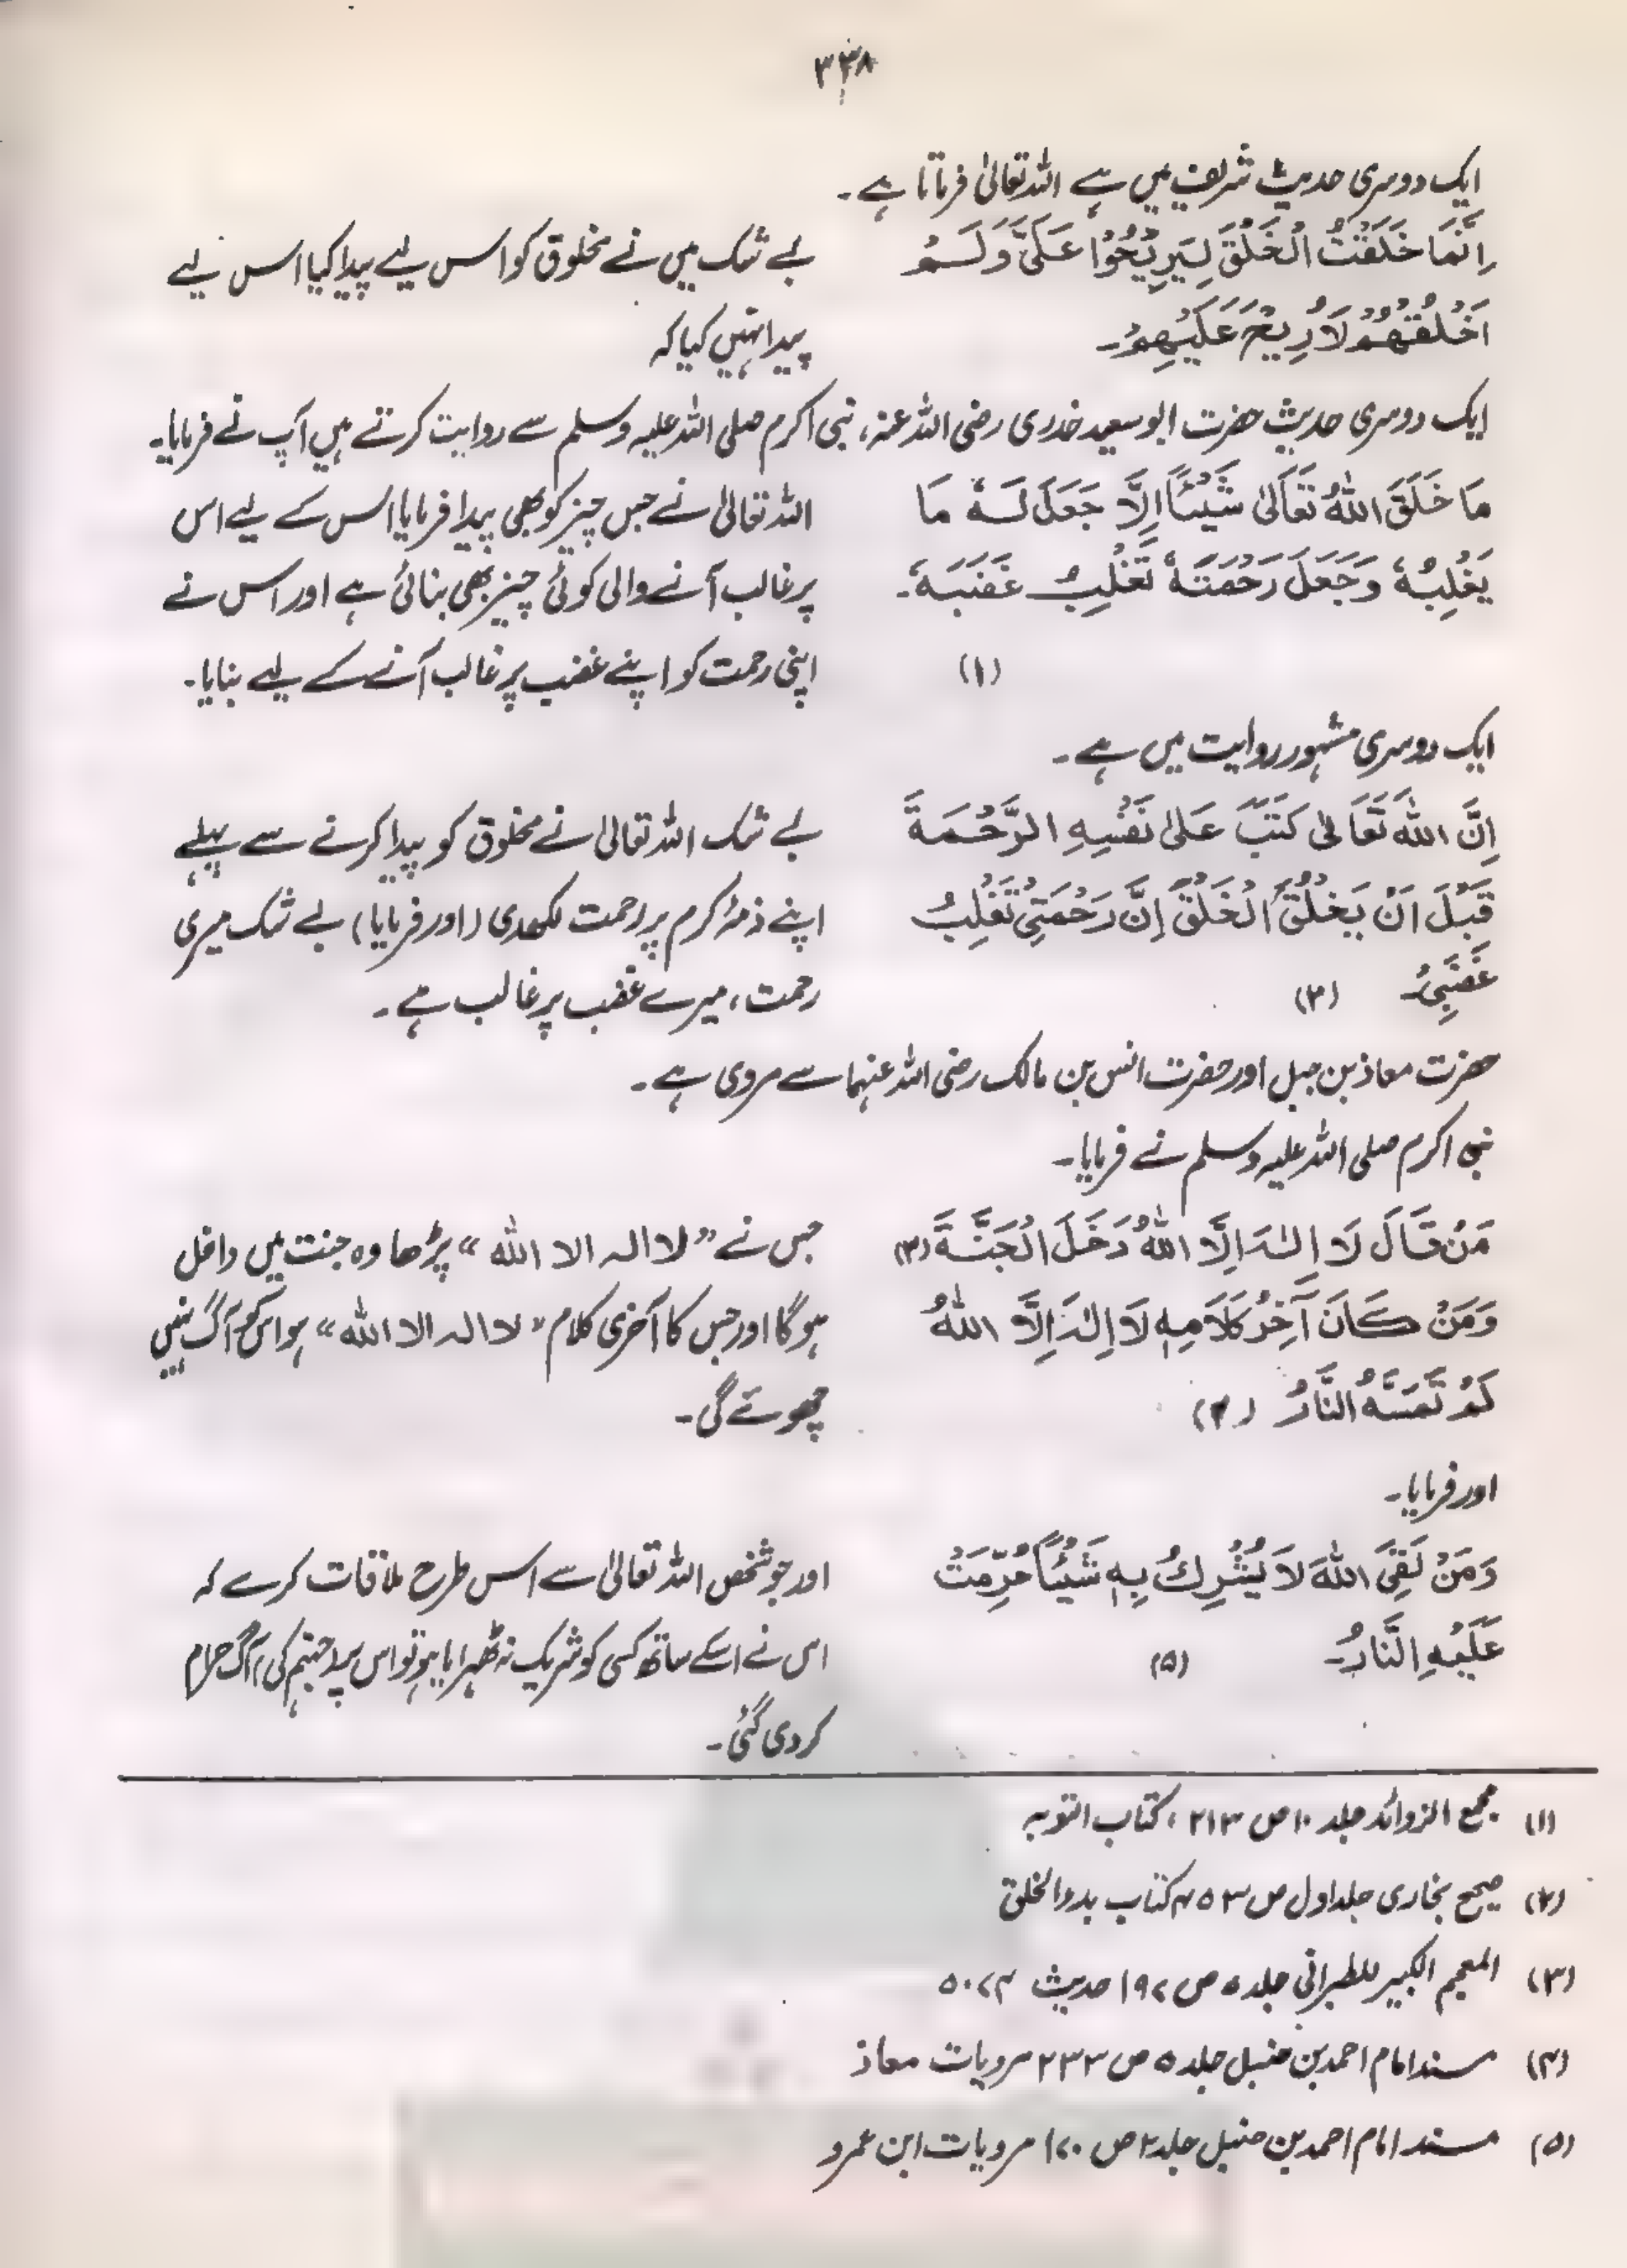 ۳۳۸
ایک دوسری حدیث شریف میں ہے اللہ تعالیٰ فرماتا ہے۔
اِنَّمَا خَلَقْتُ الْخَلْقَ لِيَرِبْحُوْا عَلَيَّ وَلَمْ
اَخْلُقْهُمْ لَاُرِبْحَ عَلَيْهِمْ۔
بے شک میں نے مخلوق کو اس لیے پیدا کیا اس لیے
پیدا نہیں کیا کہ
ایک دوسری حدیث حضرت ابو سعید خدری رضی اللہ عنہ، نبی اکرم صلی اللہ علیہ وسلم سے روایت کرتے ہیں آپ نے فرمایا۔
مَا خَلَقَ اللهُ تَعَالٰى شَيْئًا اِلَّا جَعَلَ لَهٗ مَا
يَغْلِبُهٗ وَجَعَلَ رَحْمَتَهٗ تَغْلِبُ غَضَبَهٗ۔
(۱)
اللہ تعالیٰ نے جس چیز کو بھی پیدا فرمایا اس کے لیے اس
پر غالب آنے والی کوئی چیز بھی بنائی ہے اور اس نے
اپنی رحمت کو اپنے غضب پر غالب آنے کے لیے بنایا۔
ایک دوسری مشہور روایت میں ہے۔
اِنَّ اللهَ تَعَالٰى كَتَبَ عَلٰى نَفْسِهِ الرَّحْمَةَ
قَبْلَ اَنْ يَخْلُقَ الْخَلْقَ اِنَّ رَحْمَتِيْ تَغْلِبُ
غَضَبِيْ۔ (۲)
بے شک اللہ تعالیٰ نے مخلوق کو پیدا کرنے سے پہلے
اپنے ذمۂ کرم پر رحمت لکھدی (اور فرمایا) بے شک میری
رحمت، میرے غضب پر غالب ہے۔
حضرت معاذ بن جبل اور حضرت انس بن مالک رضی اللہ عنہما سے مروی ہے۔
نبی اکرم صلی اللہ علیہ وسلم نے فرمایا۔
مَنْ قَالَ لَا اِلٰهَ اِلَّا اللهُ دَخَلَ الْجَنَّةَ (۳)
وَمَنْ كَانَ آخِرُ كَلَامِهٖ لَا اِلٰهَ اِلَّا اللهُ
لَمْ تَمَسَّهُ النَّارُ (۴)
جس نے "لا الہ الا اللہ" پڑھا وہ جنت میں داخل
ہوگا اور جس کا آخری کلام "لا الہ الا اللہ" ہو اس کو آگ نہیں
چھوئے گی۔
اور فرمایا۔
وَمَنْ لَقِيَ اللهَ لَا يُشْرِكُ بِهٖ شَيْئًا حُرِّمَتْ
عَلَيْهِ النَّارُ۔ (۵)
اور جو شخص اللہ تعالیٰ سے اس طرح ملاقات کرے کہ
اس نے اسکے ساتھ کسی کو شریک نہ ٹھہرایا ہو تو اس پر جہنم کی آگ حرام
کردی گئی۔
(۱) مجمع الزوائد جلد ۱۰ ص ۲۱۳، کتاب التوبہ
(۲) صحیح بخاری جلد اول ص ۴۵۳ کتاب بدء الخلق
(۳) المعجم الکبیر للطبرانی جلد ۵ ص ۱۹۷ حدیث ۵۰۷۴
(۴) مسند امام احمد بن حنبل جلد ۵ ص ۲۳۳ مرویات معاذ
(۵) مسند امام احمد بن حنبل جلد ۲ ص ۱۷۰ مرویات ابن عمرو